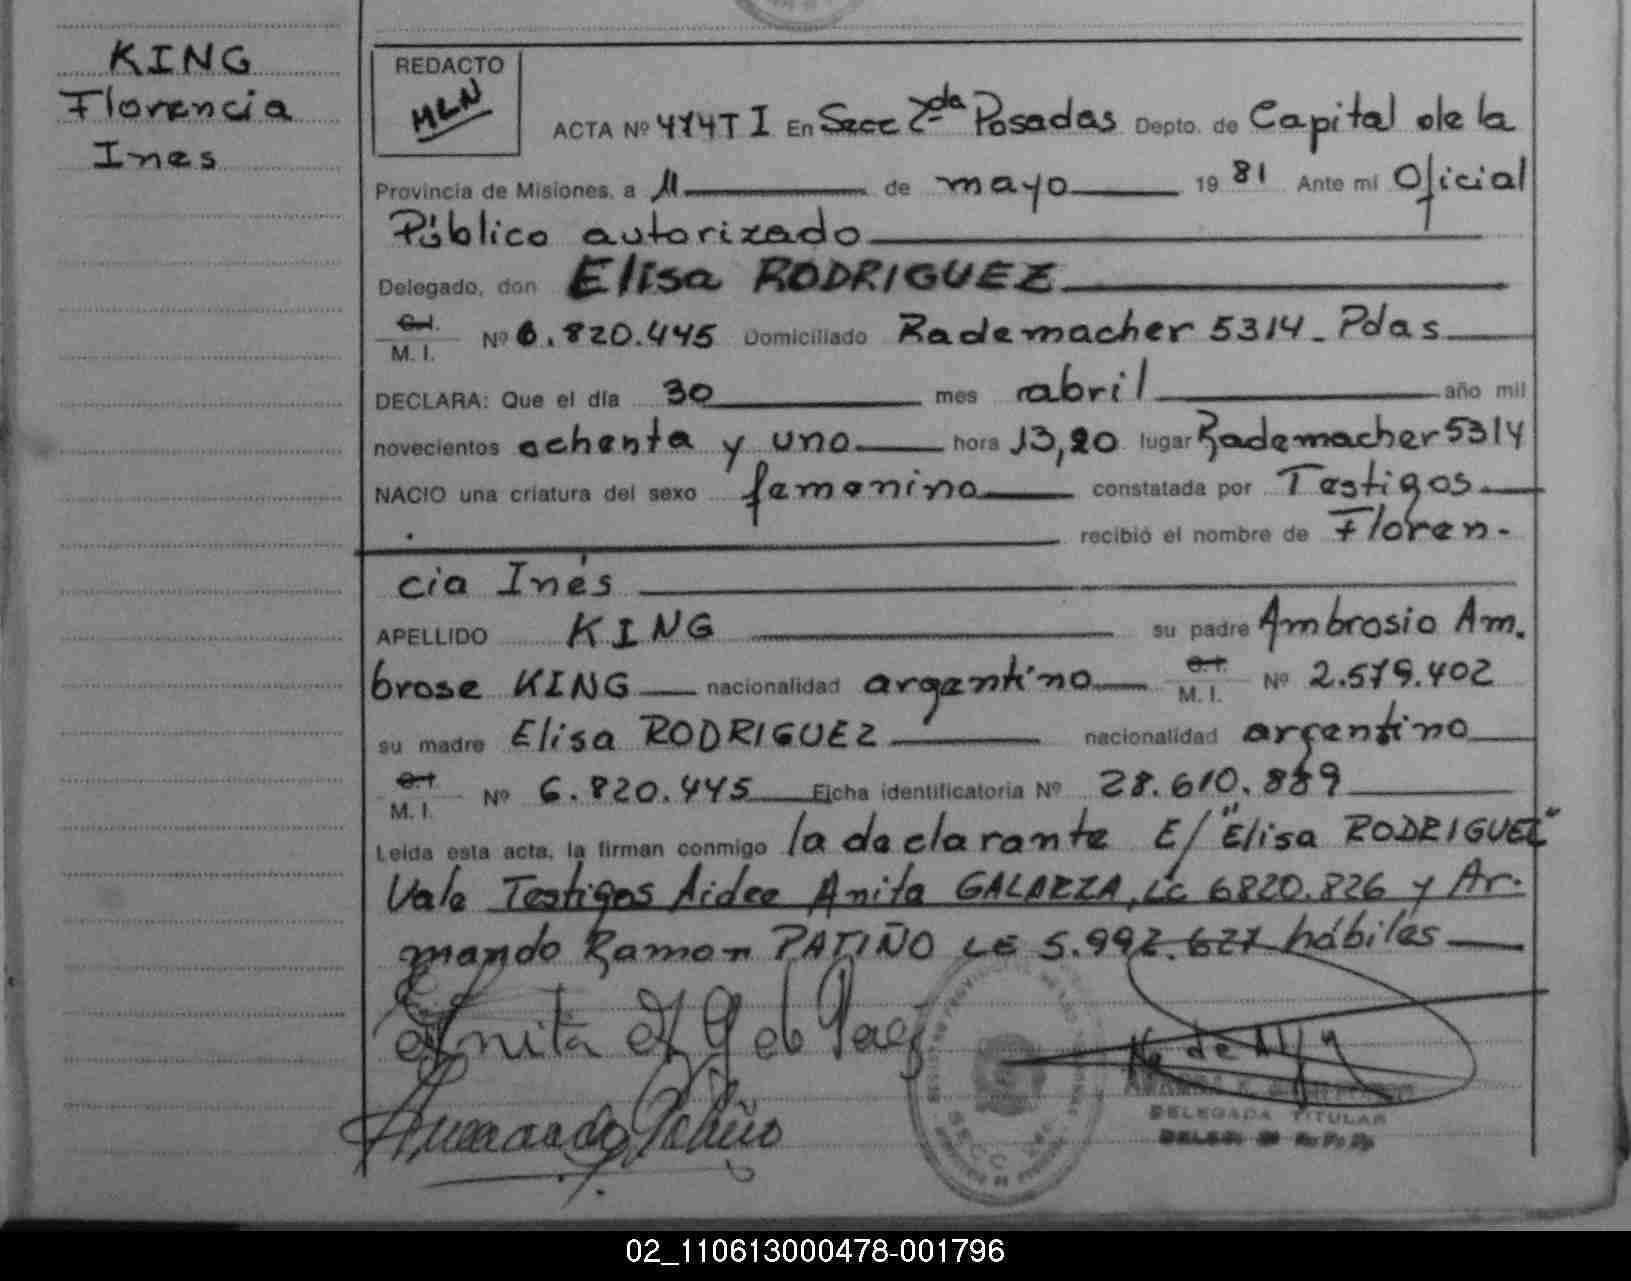 KING
Florencia
Ines
REDACTO
MLN
ACTA Nº 414T I En Secc 2da Posadas Depto. de Capital de la
Provincia de Misiones, a 11 de mayo 1981 Ante mi Oficial
Público autorizado
Delegado, don Elisa RODRIGUEZ
C.I. M. I. Nº 6.820.445 Domiciliado Rademacher 5314 - Pdas
DECLARA: Que el día 30 mes abril año mil
novecientos ochenta y uno hora 13,20 lugar Rademacher 5314
NACIO una criatura del sexo femenino constatada por Testigos
recibió el nombre de Floren-
cia Inés
APELLIDO KING su padre Ambrosio Am.
brose KING nacionalidad argentino C.I. M. I. Nº 2.579.402
su madre Elisa RODRIGUEZ nacionalidad argentino
C.I. M. I. Nº 6.820.445 Ficha identificatoria Nº 28.610.889
Leída esta acta, la firman conmigo la declarante E/"Elisa RODRIGUEZ"
Vale Testigos Aidee Anita GALARZA, LC 6820.826 y Ar-
mando Ramon PATIÑO LE 5.992.627 hábiles
Anita
Armando Patiño
DELEGADA TITULAR
02_110613000478-001796